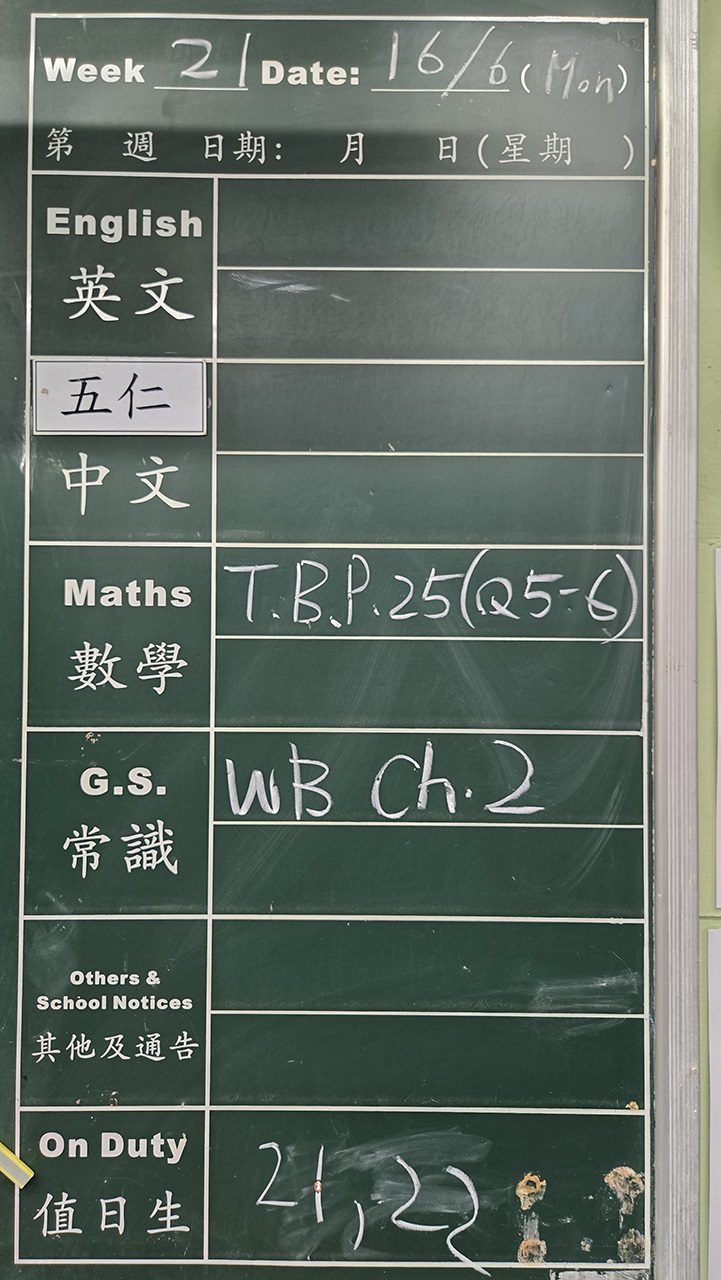 Week 21 Date: 16/6 (Mon)
第 週 日期: 月 日(星期 )
English
英文
五仁
中文
Maths T.B.P.25(Q5-6)
數學
G.S. WB Ch.2
常識
Others &
School Notices
其他及通告
On Duty 21,22
值日生